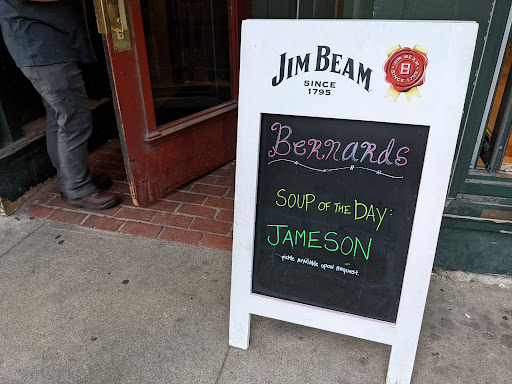 JIM BEAM
SINCE
1795
Bernards
SOUP OF THE DAY:
JAMESON
pickle available upon request.